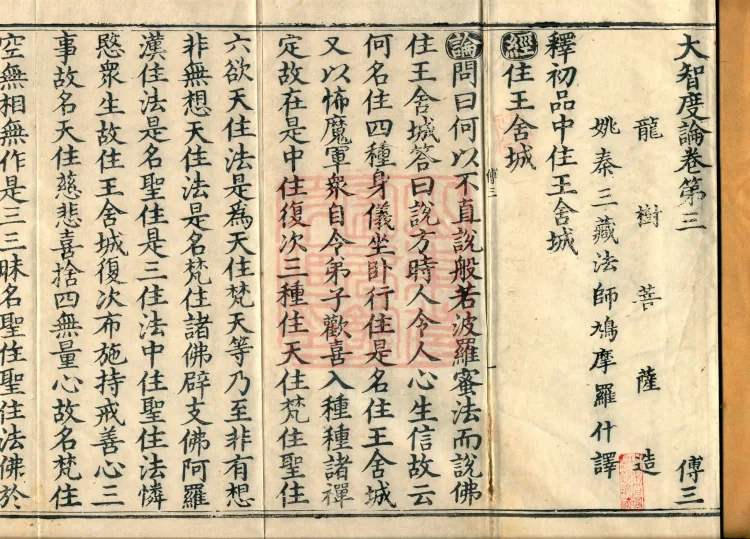 大智度論卷第三 傅三
龍樹菩薩造
姚秦三藏法師鳩摩羅什譯
釋初品中住王舍城
經住王舍城
傅三
論問曰何以不直說般若波羅蜜法而說佛
住王舍城答曰說方時人令人心生信故云
何名住四種身儀坐卧行住是名住王舍城
又以怖魔軍衆自令弟子歡喜入種種諸禪
定故在是中住復次三種住天住梵住聖住
六欲天住法是爲天住梵天等乃至非有想
非無想天住法是名梵住諸佛辟支佛阿羅
漢住法是名聖住是三住法中住聖住法憐
愍衆生故住王舍城復次布施持戒善心三
事故名天住慈悲喜捨四無量心故名梵住
空無相無作是三三昧名聖住聖住法佛於